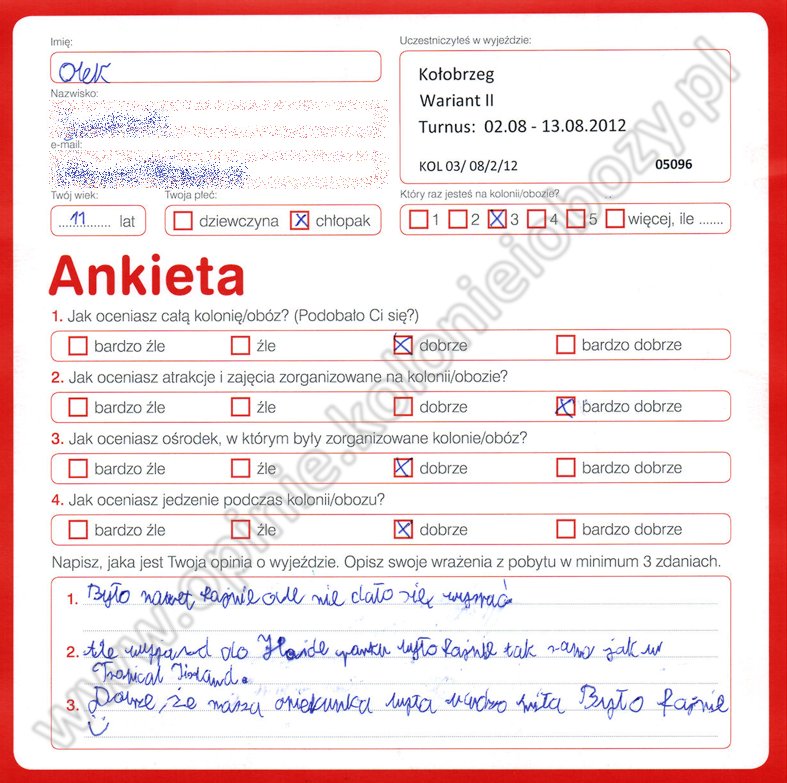 Imię:
Olek
Nazwisko:
e-mail:
Twój wiek:
11 lat
Twoja płeć:
dziewczyna X chłopak
Uczestniczyłeś w wyjeździe:
Kołobrzeg
Wariant II
Turnus: 02.08 - 13.08.2012
KOL 03/ 08/2/12 05096
Który raz jesteś na kolonii/obozie?
1 2 X 3 4 5 więcej, ile .......
Ankieta
1. Jak oceniasz całą kolonię/obóz? (Podobało Ci się?)
bardzo źle źle X dobrze bardzo dobrze
2. Jak oceniasz atrakcje i zajęcia zorganizowane na kolonii/obozie?
bardzo źle źle dobrze X bardzo dobrze
3. Jak oceniasz ośrodek, w którym były zorganizowane kolonie/obóz?
bardzo źle źle X dobrze bardzo dobrze
4. Jak oceniasz jedzenie podczas kolonii/obozu?
bardzo źle źle X dobrze bardzo dobrze
Napisz, jaka jest Twoja opinia o wyjeździe. Opisz swoje wrażenia z pobytu w minimum 3 zdaniach.
1. Było nawet fajnie ale nie dało się wyspać.
2. Ale wyjazd do Heide parku było fajnie tak samo jak w
Tropical Island.
3. Dobrze, że nasza opiekunka była bardzo miła Było fajnie
www.opinie.kolonieiobozy.pl